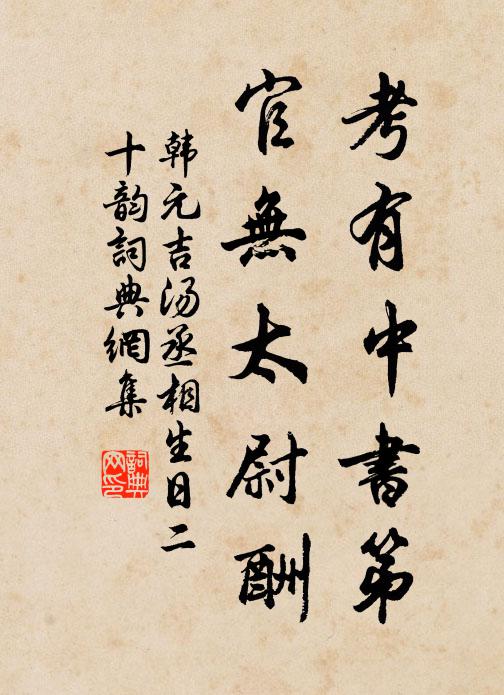 考有中書第
官無太尉酬
韩元吉汤丞相生日二
十韵詞典網集
詞典
网印